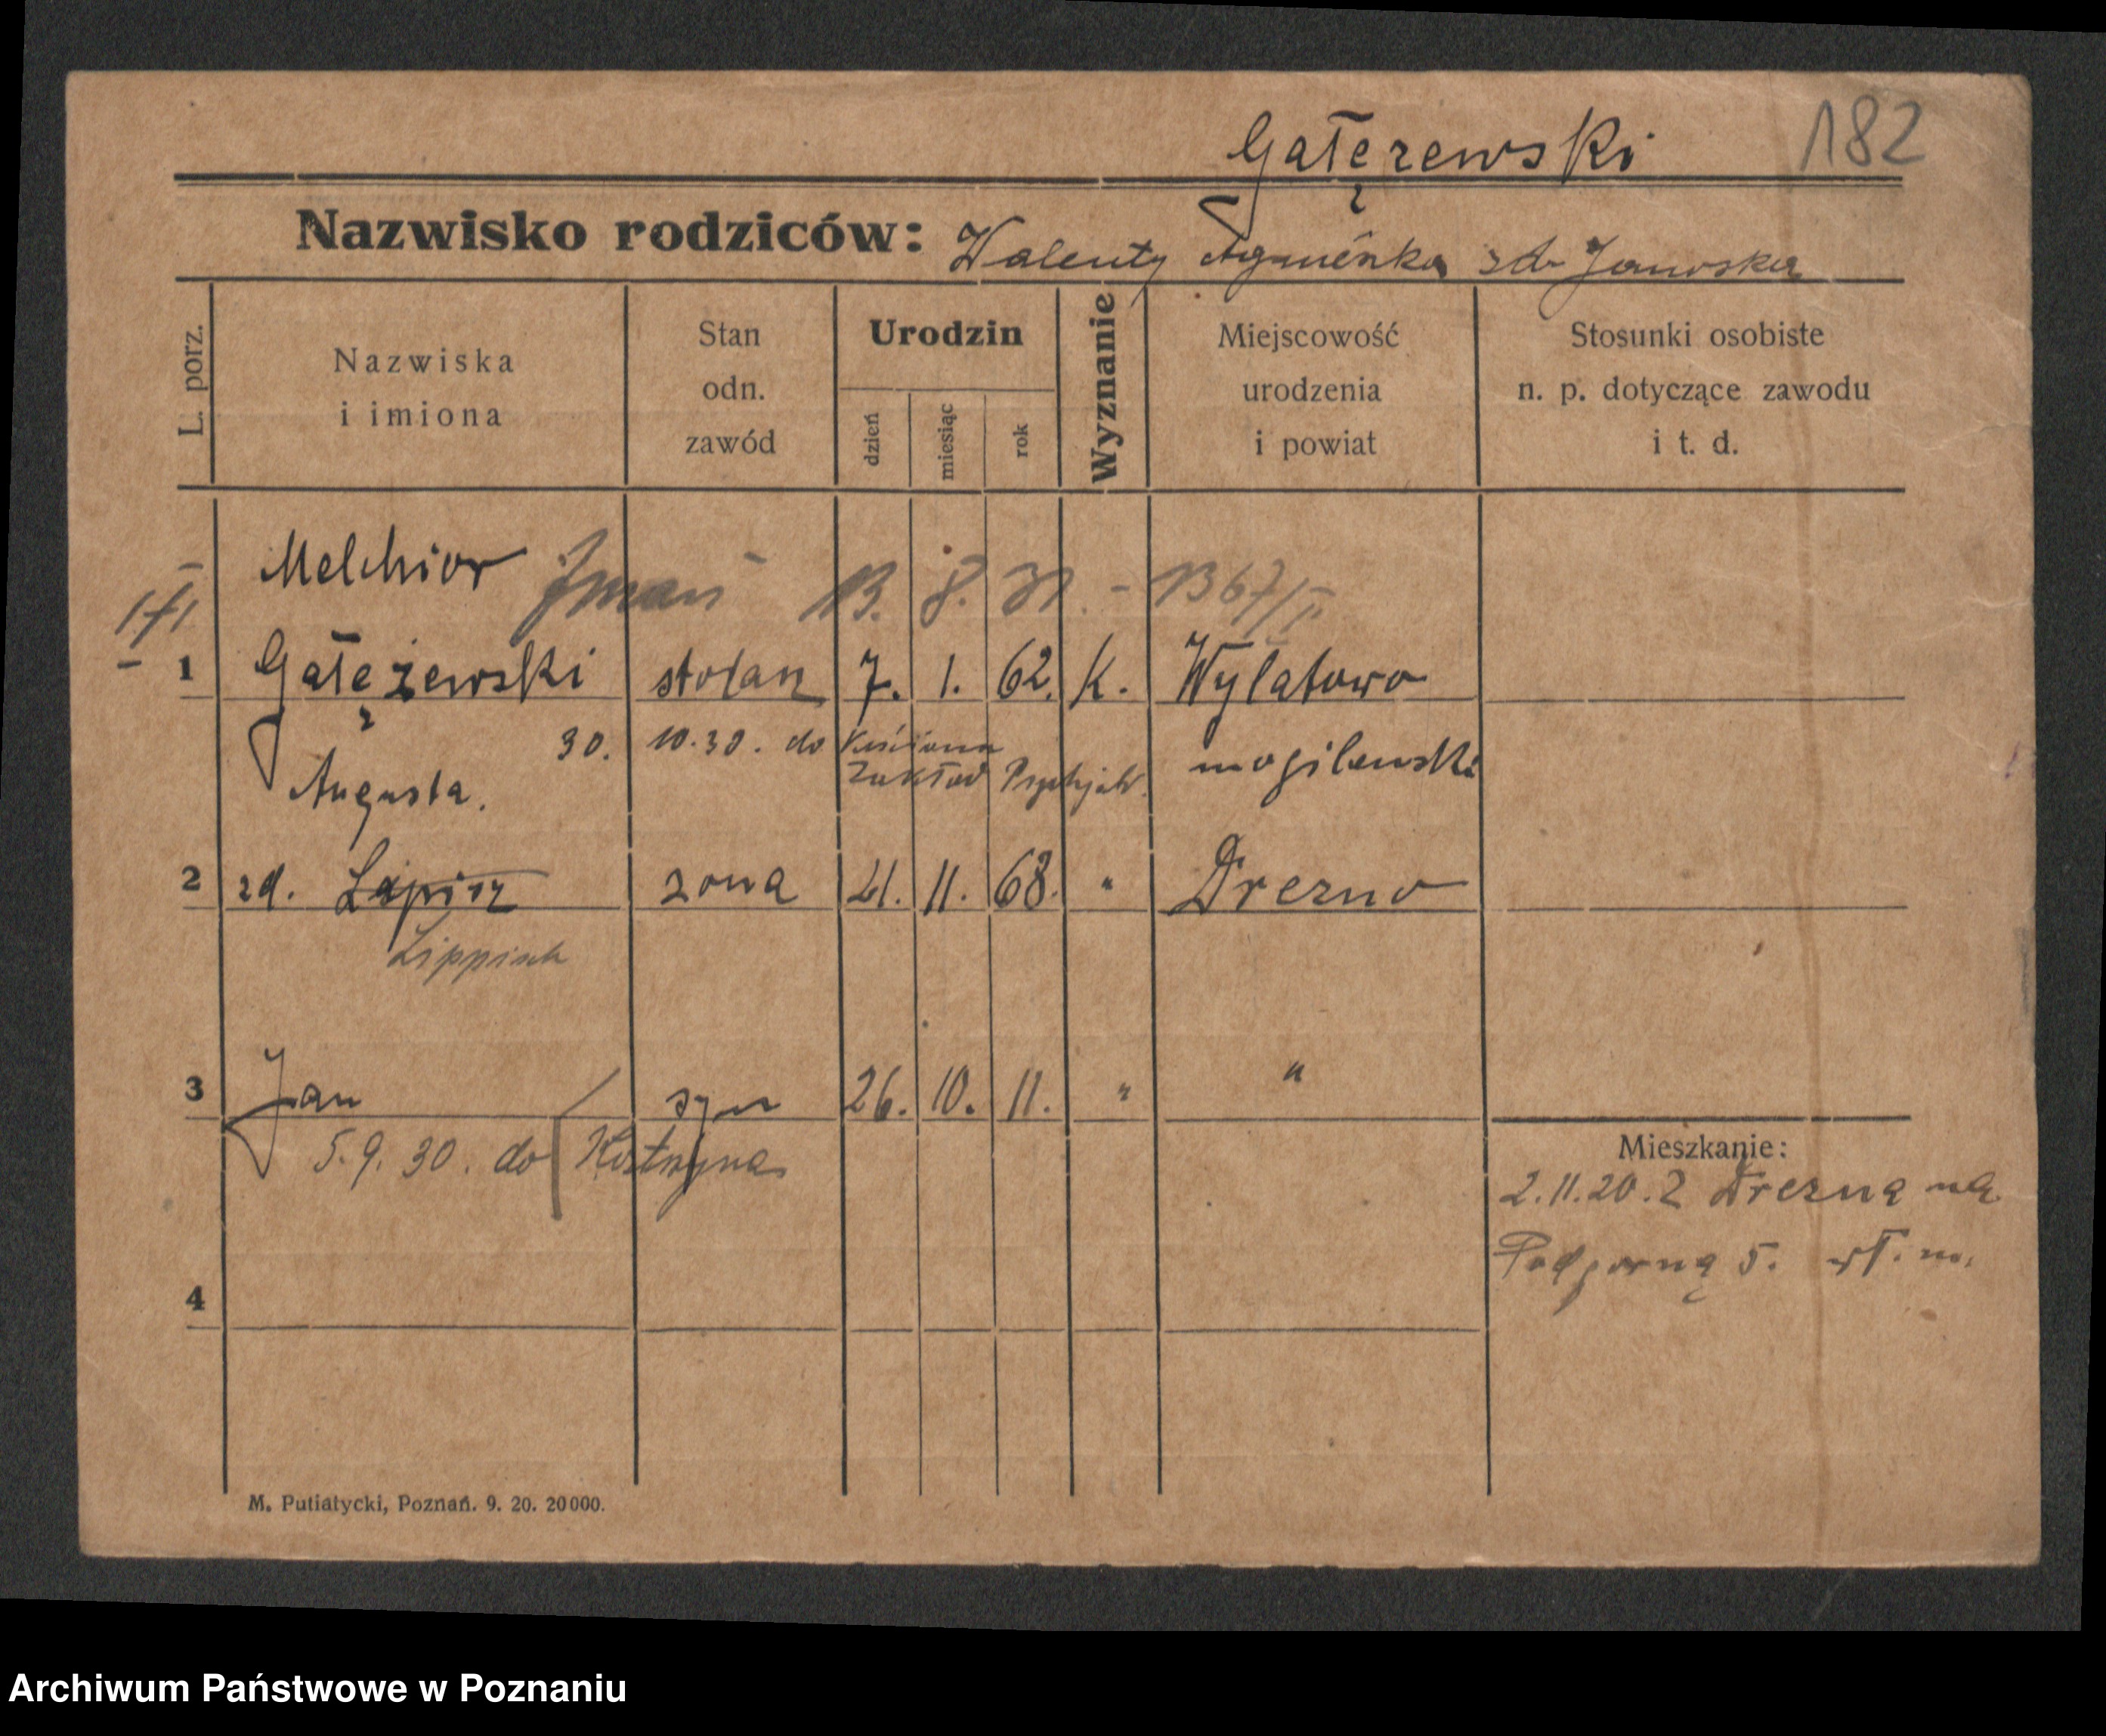 Gałęzewski 182
Nazwisko rodziców: Walenty Agnieszka zd. Janoska
L. porz.
Nazwiska
i imiona
Stan
odn.
zawód
Urodzin
dzień
miesiąc
rok
Wyznanie
Miejscowość
urodzenia
i powiat
Stosunki osobiste
n. p. dotyczące zawodu
i t. d.
Melchior zmarł 13. 8. 31. - 1367/II
1 Gałężewski stolarz 7. 1. 62. k. Wylatowo
30. 10. 30. do Kościana mogilenski
Zakład Psychjatr.
Augusta.
2 zd. Lapisz zona 21. 11. 68. " Drezno
Lippisch
3 Jan syn 26. 10. 11. " "
5. 9. 30. do Kostrzyna
Mieszkanie:
2. 11. 20. z Drezna na
Podgorną 5. wł. m.
4
M. Putiatycki, Poznań. 9. 20. 20000.
Archiwum Państwowe w Poznaniu